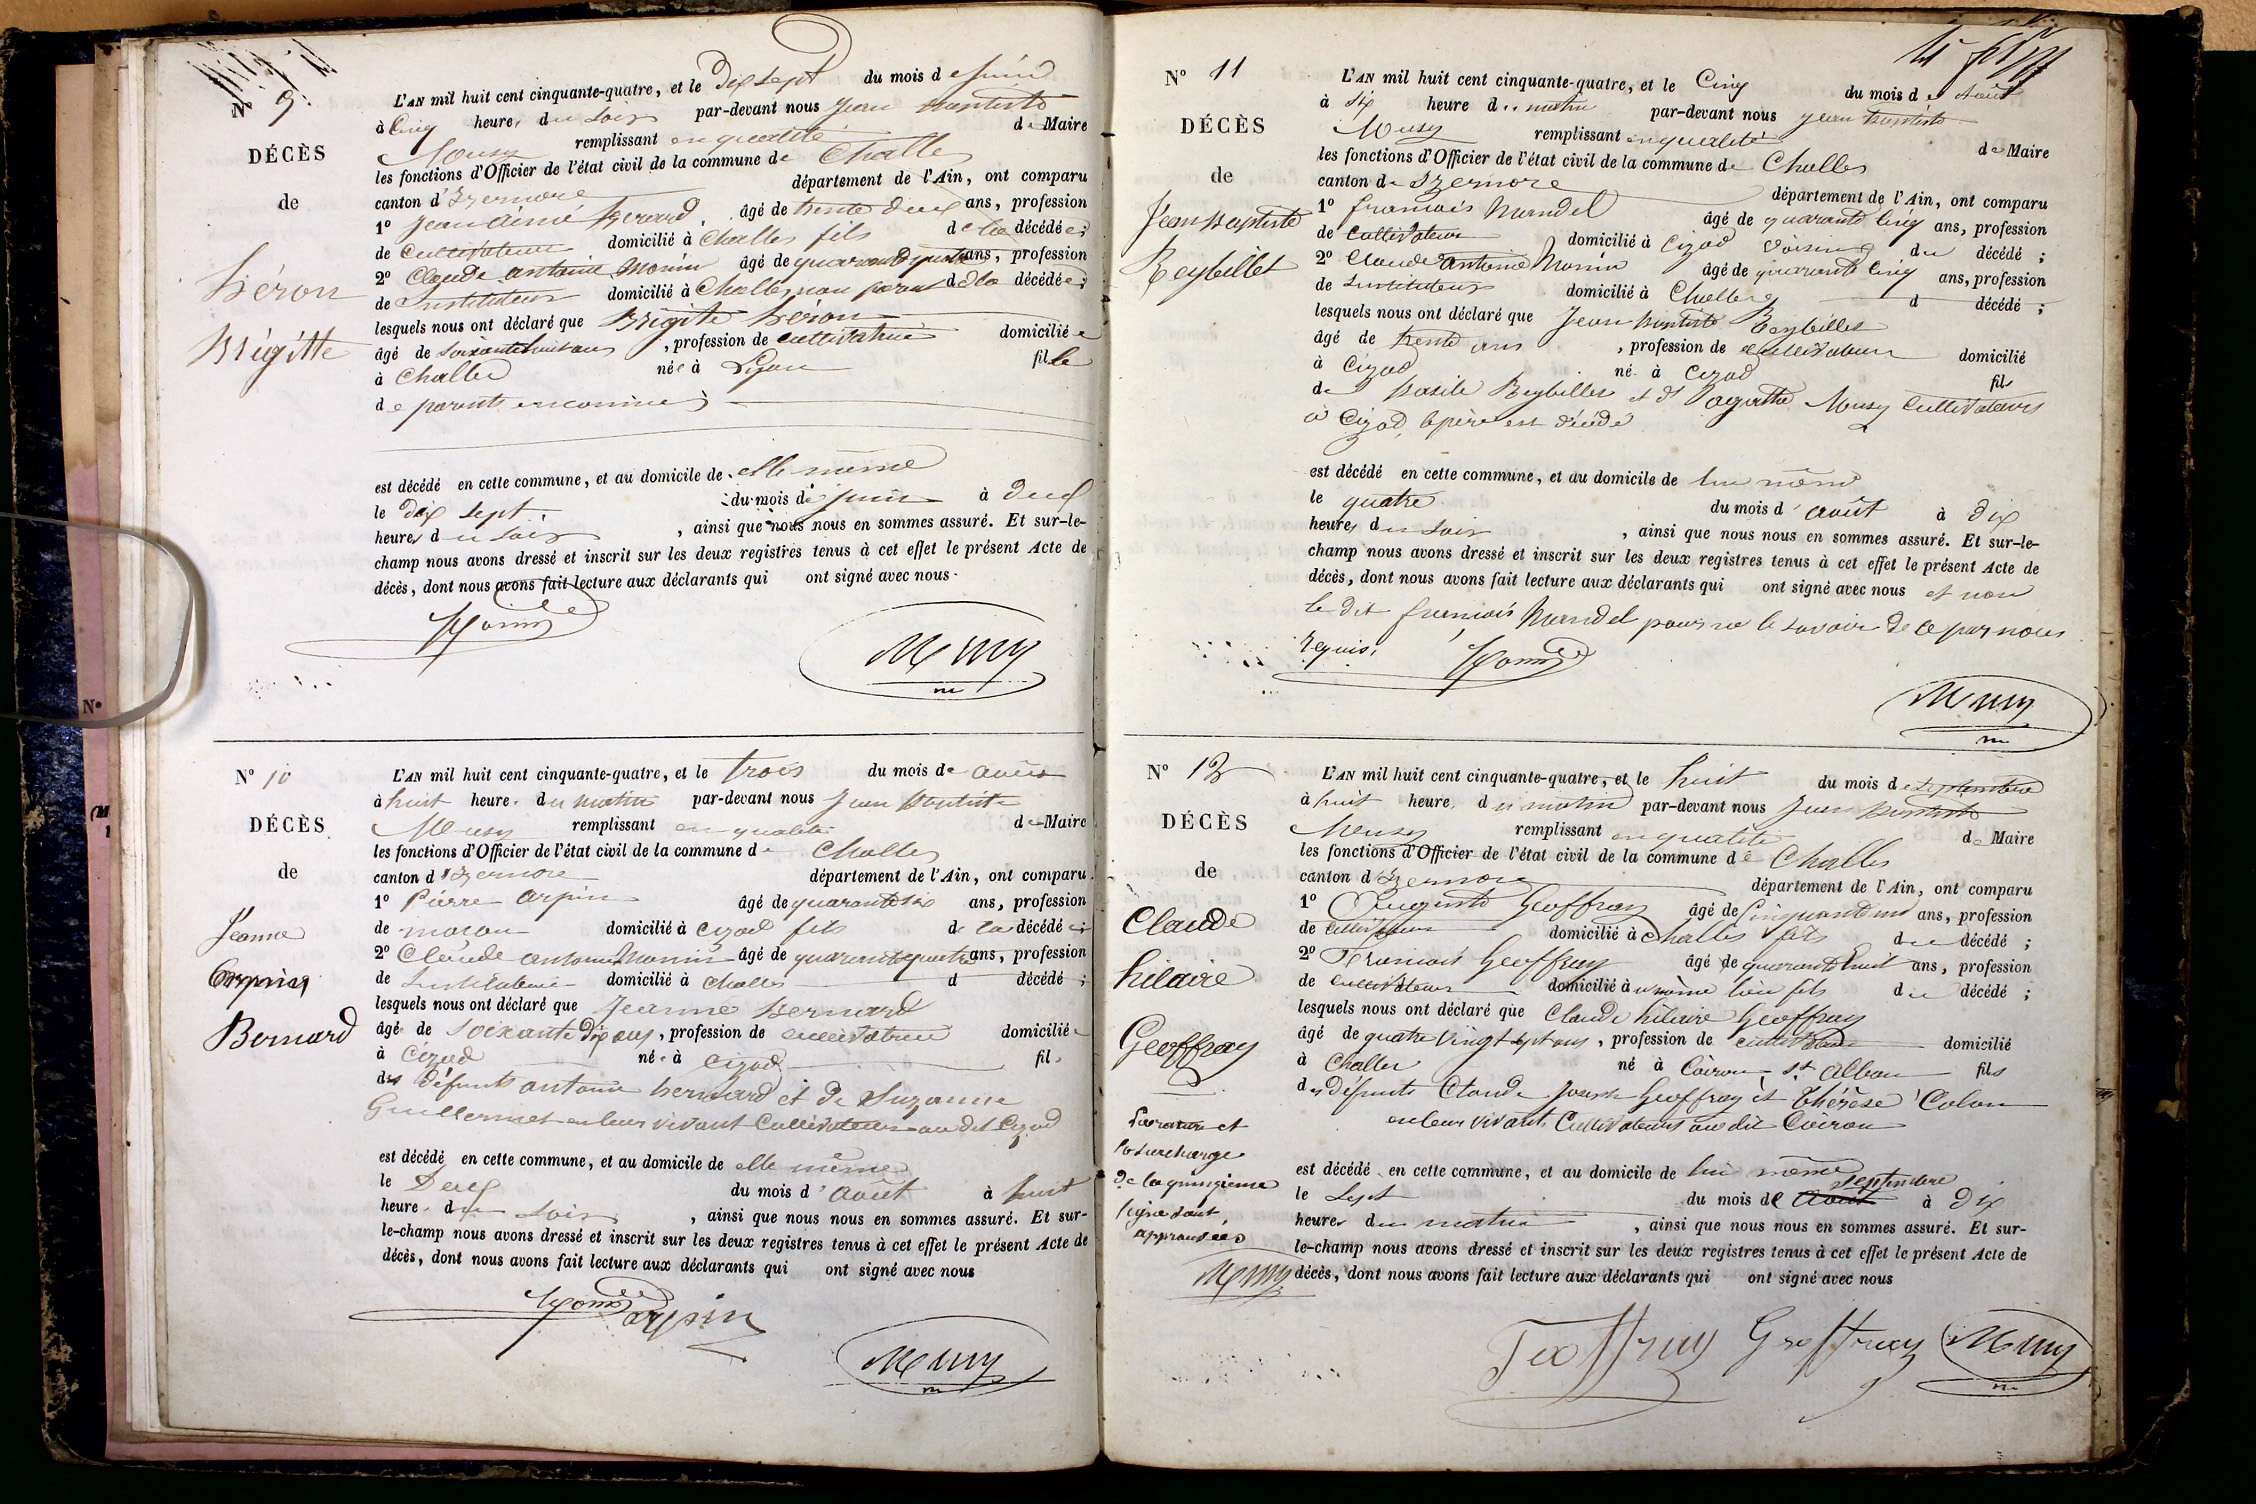 N° 9
DÉCÈS
de
héron
Brigitte
L'AN mil huit cent cinquante-quatre, et le Dix sept du mois de juin
à Cinq heures du soir par-devant nous Jean Baptiste
Mousy remplissant en qualité de Maire
les fonctions d'Officier de l'état civil de la commune de Challes
canton d'Izernore département de l'Ain, ont comparu
1° Jean aimé âgé de trente deux ans, profession
de Cultivateur domicilié à Challes fils de la décédée;
2° Claude antoine Monin âgé de quarante quatre ans, profession
de Instituteur domicilié à Challes non parent de la décédée;
lesquels nous ont déclaré que Brigite héron
âgé de soixante huit ans, profession de cultivatrice domiciliée
à Challes née à Lyon fille
de parents inconnus
est décédé en cette commune, et au domicile de elle même
le dix sept du mois de juin à deux
heures du soir, ainsi que nous nous en sommes assuré. Et sur-le-
champ nous avons dressé et inscrit sur les deux registres tenus à cet effet le présent Acte de
décès, dont nous avons fait lecture aux déclarants qui ont signé avec nous.
Monin
Mousy
N° 10
DÉCÈS
de
Jeanne
Bernard
L'AN mil huit cent cinquante-quatre, et le trois du mois de août
à huit heure du matin par-devant nous Jean Baptiste
Mousy remplissant en qualité de Maire
les fonctions d'Officier de l'état civil de la commune de Challes
canton d'Izernore département de l'Ain, ont comparu
1° Pierre arpin âgé de quarante six ans, profession
de maçon domicilié à Cizod fils de la décédée;
2° Claude antoine Monin âgé de quarante quatre ans, profession
de Instituteur domicilié à Challes d décédé;
lesquels nous ont déclaré que Jeanne Bernard
âgé de soixante dix ans, profession de cultivatrice domiciliée
à Cizod née à Cizod fil
des défunts antoine bernard et de Suzanne
Guillermet en leur vivant Cultivateurs au dit Cizod
est décédé en cette commune, et au domicile de elle même
le Deux du mois d'août à huit
heure du soir, ainsi que nous nous en sommes assuré. Et sur-
le-champ nous avons dressé et inscrit sur les deux registres tenus à cet effet le présent Acte de
décès, dont nous avons fait lecture aux déclarants qui ont signé avec nous
Monin arpin
Mousy
N° 11
DÉCÈS
de
Jean Baptiste
Reybillet
L'AN mil huit cent cinquante-quatre, et le Cinq du mois d'Août
à six heure du matin par-devant nous Jean Baptiste
Mousy remplissant en qualité de Maire
les fonctions d'Officier de l'état civil de la commune de Challes
canton d'Izernore département de l'Ain, ont comparu
1° françois Mandel âgé de quarante Cinq ans, profession
de Cultivateur domicilié à Cizod voisin du décédé;
2° Claude antoine Monin âgé de quarante Cinq ans, profession
de Instituteur domicilié à Challes d décédé;
lesquels nous ont déclaré que Jean Baptiste Reybillet
âgé de trente ans, profession de cultivateur domicilié
à Cizod né à Cizod fils
de Basile Reybillet et d'agathe Mousy Cultivateurs
à Cizod, le père est décédé
est décédé en cette commune, et au domicile de lui même
le quatre du mois d'août à dix
heures du soir, ainsi que nous nous en sommes assuré. Et sur-le-
champ nous avons dressé et inscrit sur les deux registres tenus à cet effet le présent Acte de
décès, dont nous avons fait lecture aux déclarants qui ont signé avec nous et non
le dit françois Mandel pour ne le savoir de ce par nous
requis.
Monin
Mousy
N° 12
DÉCÈS
de
Claude
hilaire
Geoffray
La rature et
la surcharge
de la quinzieme
ligne sont
approuvées
Mousy
L'AN mil huit cent cinquante-quatre, et le huit du mois de septembre
à huit heure du matin par-devant nous Jean Baptiste
Mousy remplissant en qualité de Maire
les fonctions d'Officier de l'état civil de la commune de Challes
canton d'Izernore département de l'Ain, ont comparu
1° Auguste Geoffray âgé de Cinquante un ans, profession
de Cultivateur domicilié à Challes fils du décédé;
2° François Geoffray âgé de quarante huit ans, profession
de cultivateur domicilié à même lieu fils du décédé;
lesquels nous ont déclaré que Claude hilaire Geoffray
âgé de quatre vingt sept ans, profession de cultivateur domicilié
à Challes né à Coiron St alban fils
des défunts Claude Joseph Geoffray et Thérèse Colon
en leur vivant Cultivateurs au dit Coiron
est décédé en cette commune, et au domicile de lui même
le sept du mois de août septembre à dix
heures du matin, ainsi que nous nous en sommes assuré. Et sur-
le-champ nous avons dressé et inscrit sur les deux registres tenus à cet effet le présent Acte de
décès, dont nous avons fait lecture aux déclarants qui ont signé avec nous
Jeoffray Geoffray Mousy